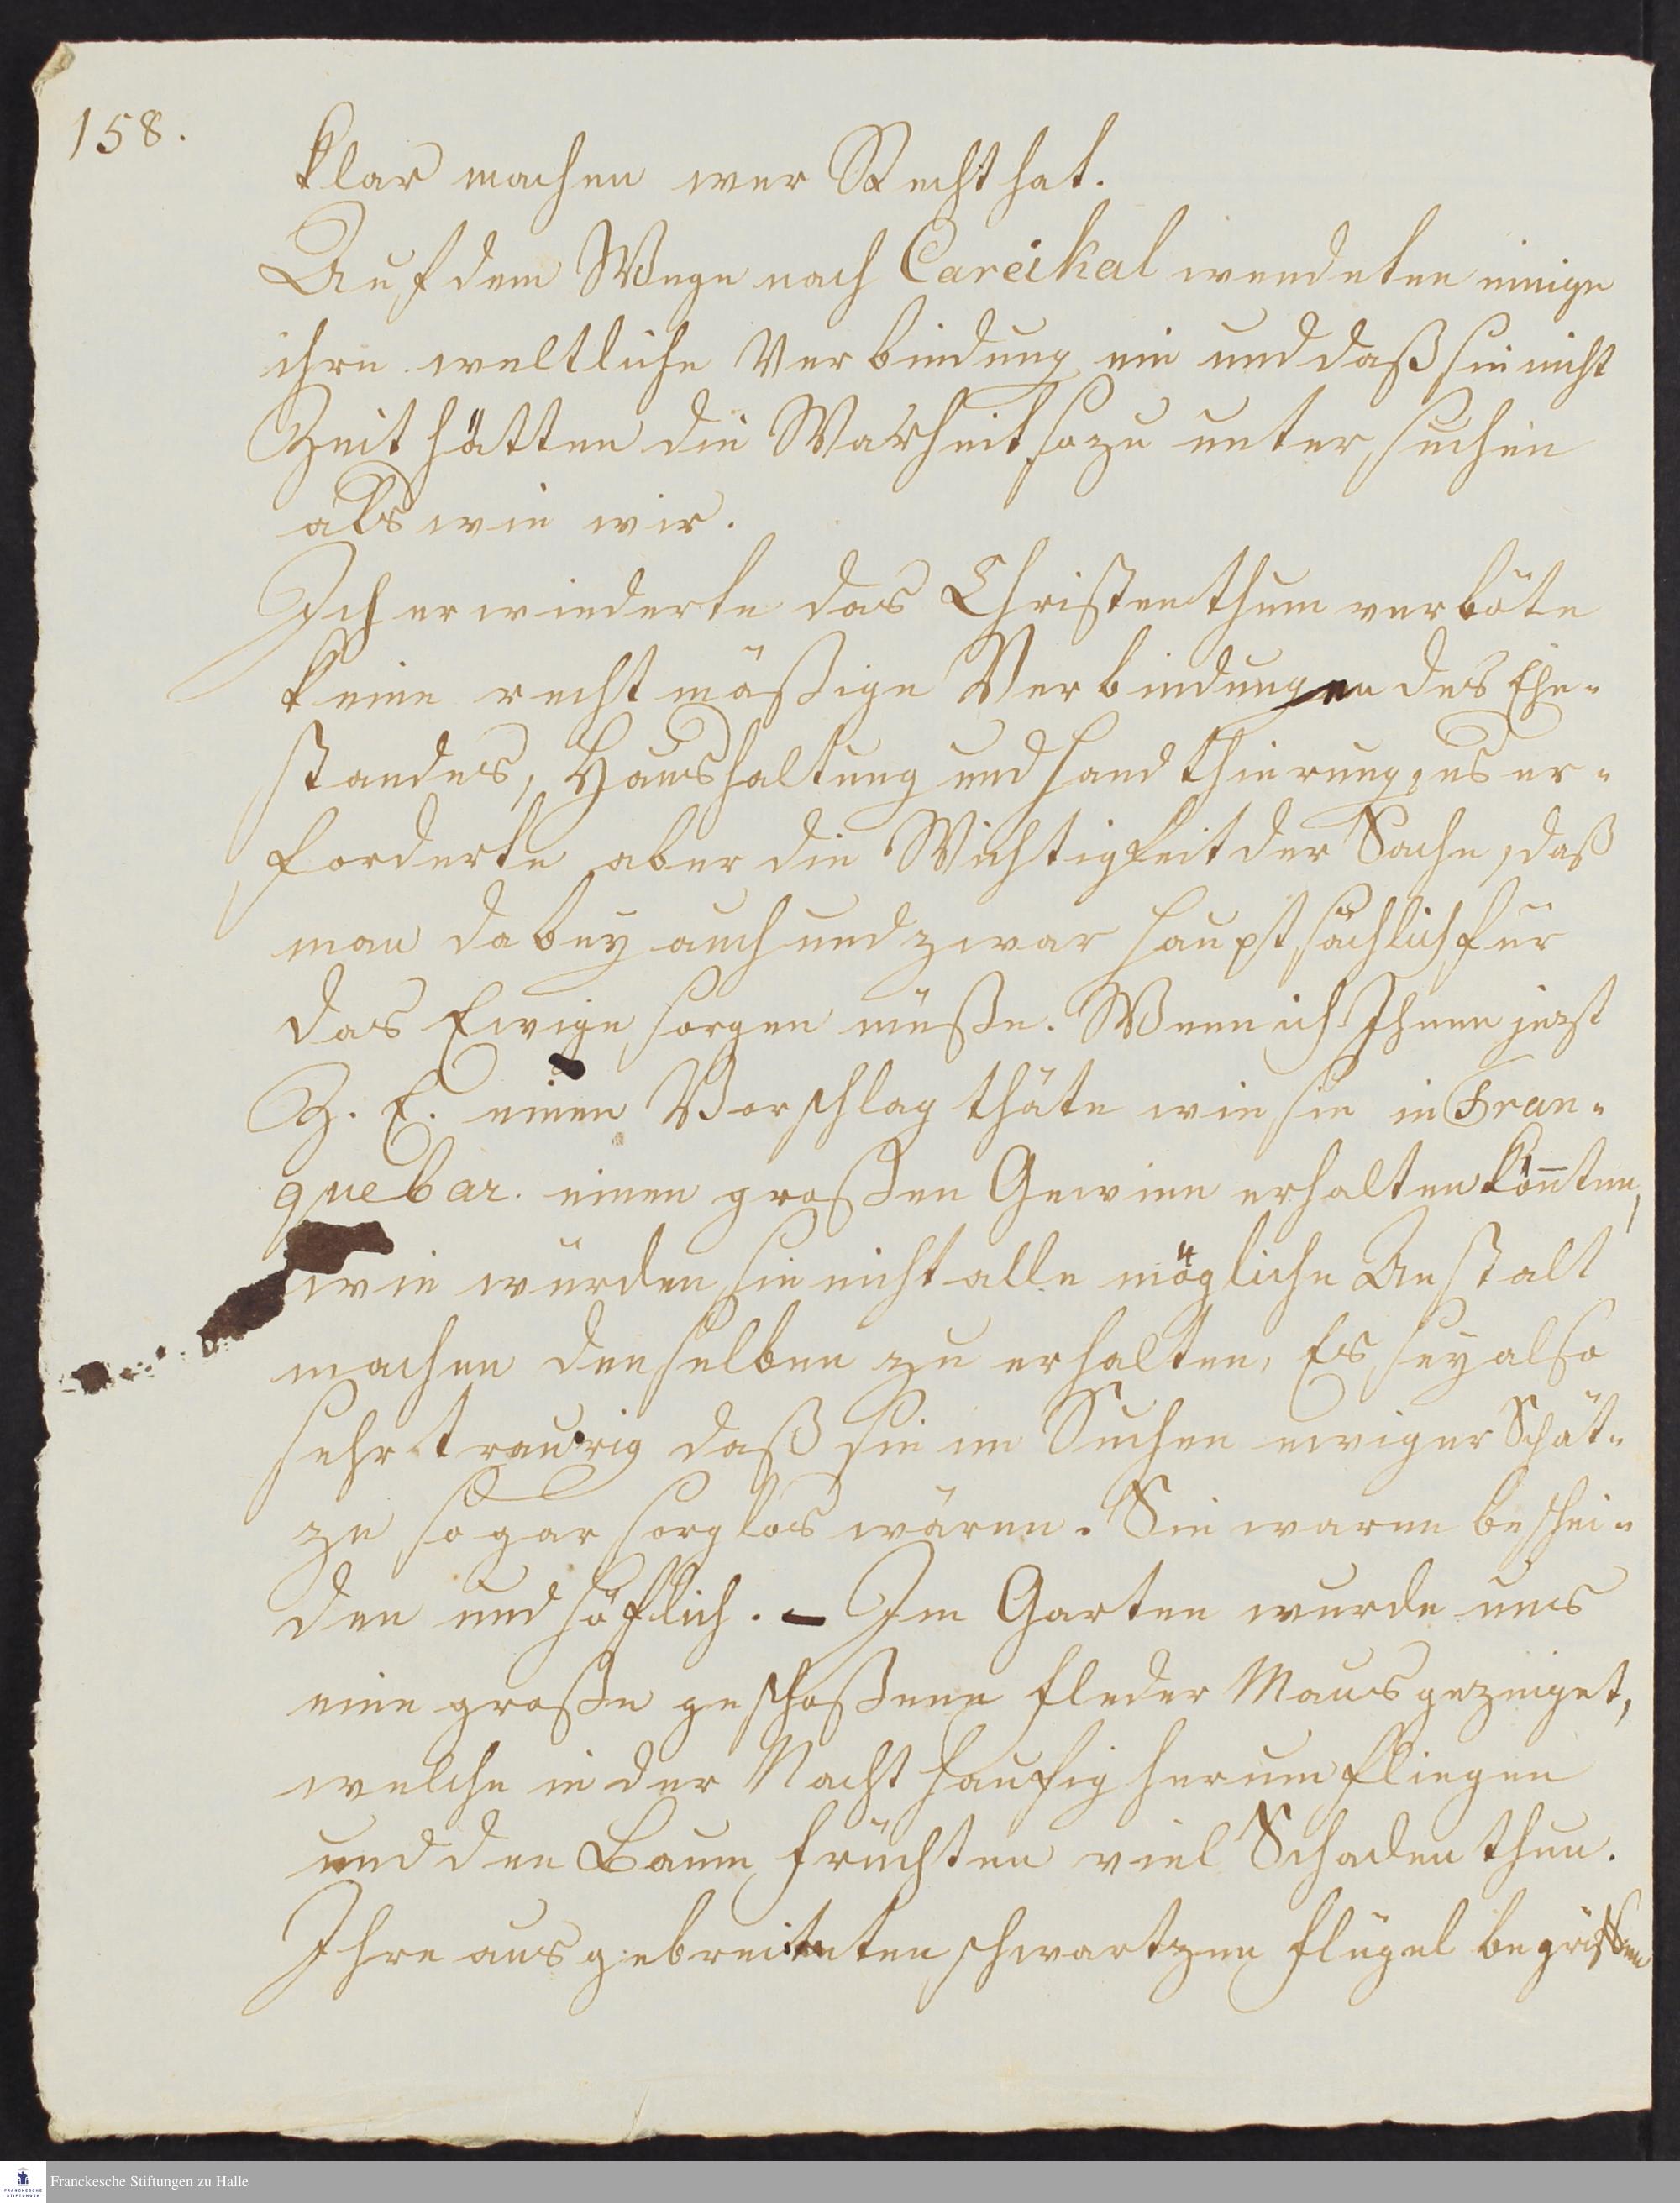 158.
klar machen wer Recht hat.
Auf dem Wege nach Careikal wendeten einige
ihre weltliche Verbindung ein und daß sie nicht
Zeit hätten die Warheit so zu unter suchen
als wie wir.
Ich erwiederte das Christenthum verböte
keine recht mäßige Verbindungen des Ehe-
standes, Haushaltung und Handthierung, es er-
forderte aber die Wichtigkeit der Sache, daß
man dabey auch und zwar hauptsächlich für
das Ewige sorgen müße. Wenn ich Ihnen jezt
Z. E. einen Vorschlag thäte wie sie in Tran-
quebar. einen großen Gewinn erhalten kön̄ten,
wie würden sie nicht alle mögliche Anstalt
machen denselben zu erhalten, Es sey also
sehr traurig daß sie im Suchen ewiger Schät-
ze so gar sorglos wären. Sie waren beschei-
den und höflich. – Im Garten wurde uns
eine große geschoßene Fleder Maus gezeiget,
welche in der Nacht haufig herum fliegen
und den Baum früchten viel Schaden thun.
Ihre ausgebreiteten schwartzen Flügel begriffen
Franckesche Stiftungen zu Halle
FRANCKESCHE
STIFTUNGEN